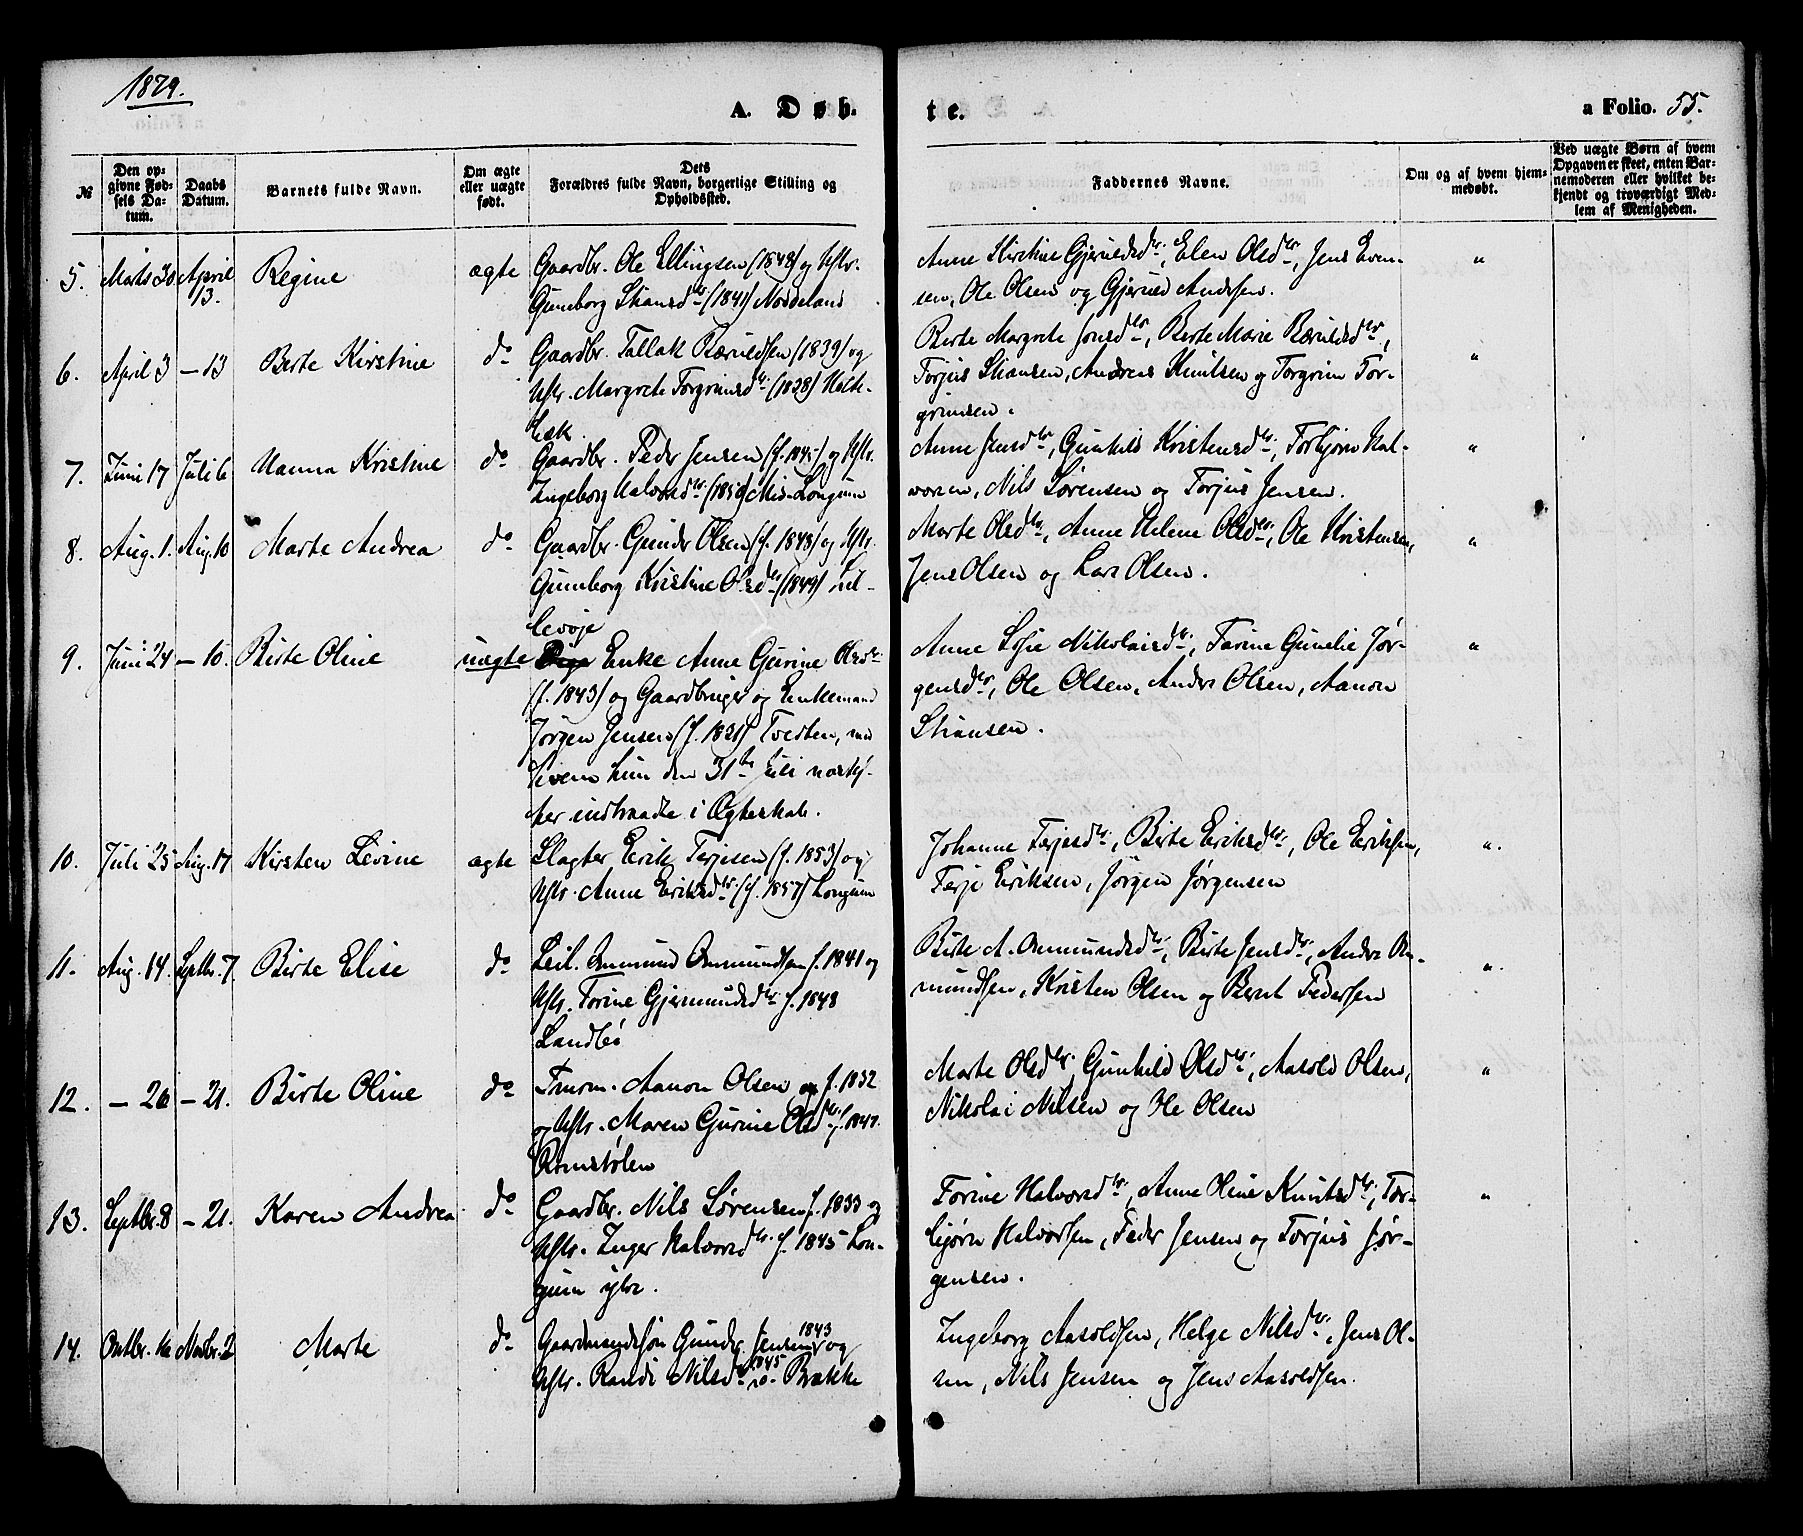 1879.
A. Døbte.
a Folio. 55.
№
Den opgivne Fødsels Datum.
Daabs Datum.
Barnets fulde Navn.
Om ægte eller uægte født.
Dets Forældres fulde Navn, borgerlige Stilling og Opholdssted.
Faddernes Navne.
Om og af hvem hjemmedøbt.
Ved uægte Børn af hvem Opgaven er skeet, enten Barnemoderen eller hvilket bekjendt og troværdigt Medlem af Menigheden.
5. Marts 30 April 13. Regine ægte
Gaardbr. Ole Ellingsen (1848) og Hstr.
Gunborg Stiansdtr (1841) Nordeland
Anne Kirstine Gjeruldsdtr, Elen Olsdtr, Jens Even-
sen, Ole Olsen og Gjeruld Andersen.
"
6. April 3 – 13 Berte Kirstine do
Gaardbr. Tallak Bæruldsen (1839) og
Hstr. Margrete Torgrimsdtr (1828) Holte-
bæk
Berte Margrete Jonsdtr, Berte Marie Bæruldsdtr,
Torjus Stiansen, Andreas Knutsen og Torgrim Tor-
grimsen.
"
7. Juni 17 Juli 6 Hanna Kristine do
Gaardbr. Peder Jensen (f. 1845) og Hstr.
Ingeborg Halvorsdtr (1850) Mis-Longum
Anne Jensdtr, Gunhild Kristensdtr, Torbjørn Hal-
vorsen, Nils Sørensen og Torjus Jensen.
"
8. Aug. 1. Aug. 10 Marte Andrea do
Gaardbr. Gunder Olsen (f. 1848) og Hstr.
Gunborg Kristine Olsdtr (1849) Lil-
levøje
Marte Olsdtr, Anne Helene Olsdtr, Ole Kristensen,
Jens Olsen og Lars Olsen.
"
9. Juni 24 – 10. Birte Oline uægte
Enke Anne Gurine Olsdtr
(f. 1843) og Gaardbruger og Enkemand
Jørgen Jensen (f. 1821) Tveten, med
hvem hun den 31te Juli næstef-
ter indtraadte i Ægteskab.
Anne Sofie Nikolaisdtr, Tarine Gunelie Jør-
gensdtr, Ole Olsen, Anders Olsen, Aanon
Stiansen.
"
10. Juli 25 Aug. 17 Kirsten Levine ægte
Slagter Erik Terjesen (f. 1853) og
Hstr. Anne Eriksdtr. (f. 1857) Longum
Johanne Terjesdtr, Birte Eriksdtr, Ole Eriksen,
Terje Eriksen, Jørgen Jørgensen
"
11. Aug. 14. Septbr. 7. Birte Elise do
Leil. Ommund Ommundsen f. 1841 og
Hstr. Torine Gjermundsdtr f. 1848
Landbö
Birte A. Ommundsdtr, Birte Jensdtr, Anders Om-
mundsen, Kristen Olsen og Bernt Pedersen
"
12. – 26 – 21. Birte Oline do
Tmrm. Aanon Olsen f. 1832
og Hstr. Maren Gurine Olsdtr f. 1847.
Romstølen
Marte Olsdtr, Gunhild Olsdtr, Aasold Olsen,
Nikolai Nilsen og Ole Olsen
"
13. Septbr. 8 – 21. Karen Andrea do
Gaardbr. Nils Sørensen f. 1833 og
Hstr. Inger Halvorsdtr f. 1845 Lon-
gum ytre.
Torine Halvorsdtr, Anne Oline Knutsdtr, Tor-
bjørn Halvorsen, Peder Jensen og Torjus Jør-
gensen.
"
14. Octbr. 10 Novbr. 2 Marte do
Gaardmandssøn Gunder Jensen 1843 og
Hstr. Randi Nilsdtr 1845 Brække
Ingeborg Aasoldsen, Helge Nilsdtr, Jens Ol-
sen, Nils Jensen og Jens Aasoldsen.